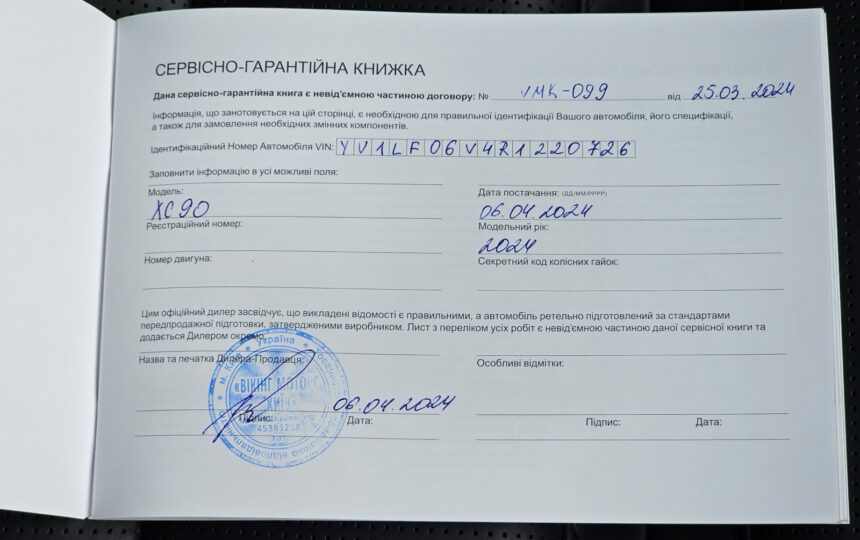 СЕРВІСНО-ГАРАНТІЙНА КНИЖКА
Дана сервісно-гарантійна книга є невід'ємною частиною договору: № VMK-099 від 25.03.2024
Інформація, що занотовується на цій сторінці, є необхідною для правильної ідентифікації Вашого автомобіля, його специфікації,
а також для замовлення необхідних змінних компонентів.
Ідентифікаційний Номер Автомобіля VIN: YV1LF06V4R1220726
Заповнити інформацію в усі можливі поля:
Модель: Дата постачання: (ДД/ММ/РРРР)
XC90 06.04.2024
Реєстраційний номер: Модельний рік:
2024
Номер двигуна: Секретний код колісних гайок:
Цим офіційний дилер засвідчує, що викладені відомості є правильними, а автомобіль ретельно підготовлений за стандартами
передпродажної підготовки, затвердженими виробником. Лист з переліком усіх робіт є невід'ємною частиною даної сервісної книги та
додається Дилером окремо.
Назва та печатка Дилера-Продавця: Особливі відмітки:
м. Київ * Україна *
«ВІКІНГ МОТОРС
КИЇВ»
06.04.2024
Підпис: Дата: Підпис: Дата: